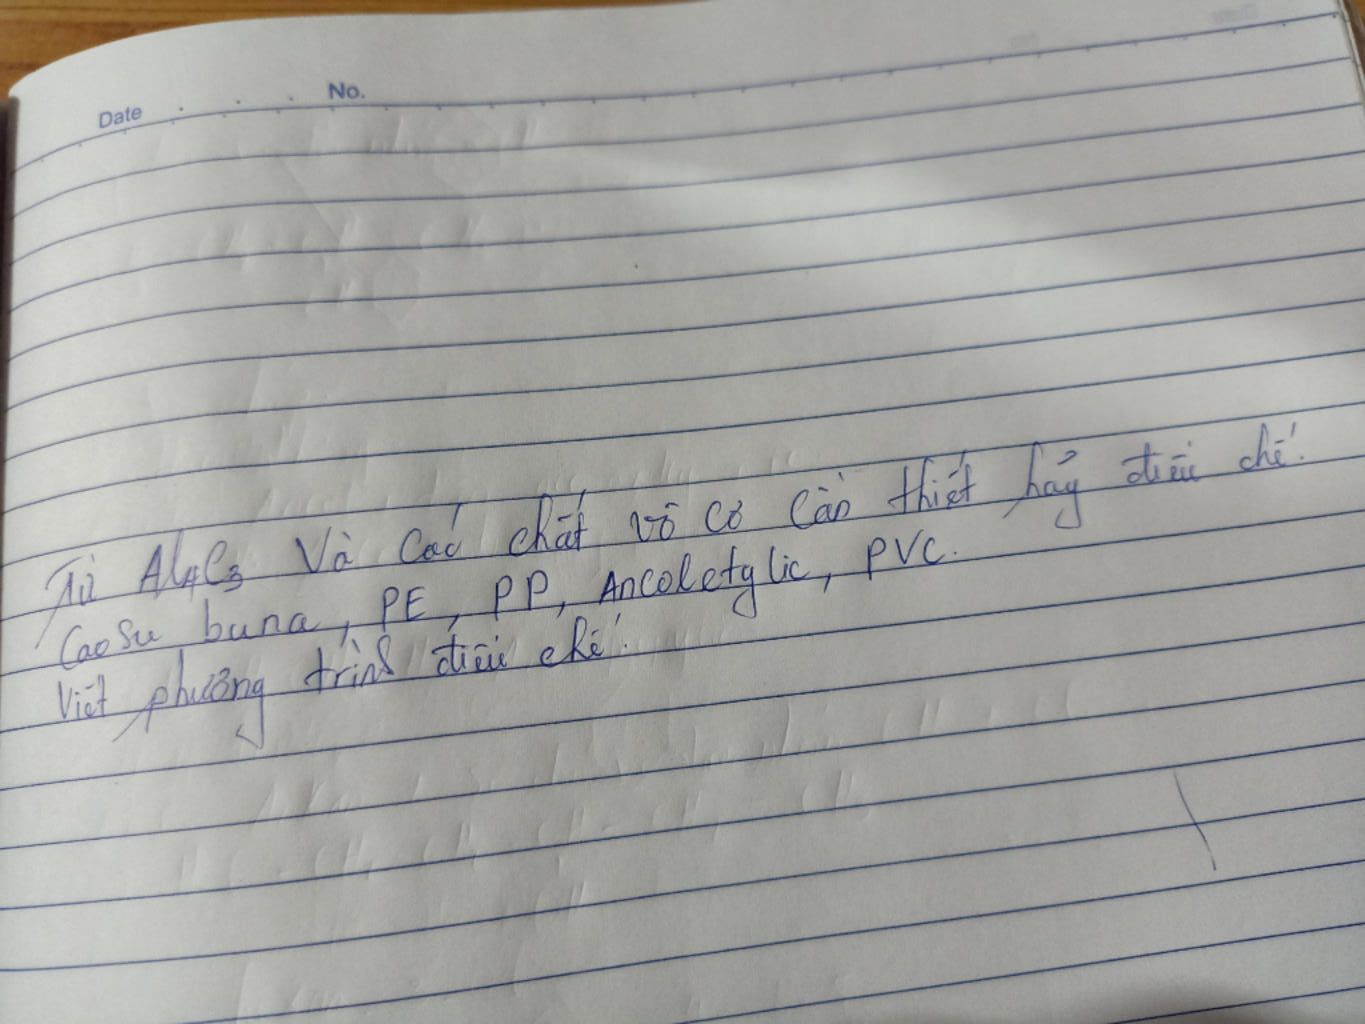 Date No.
Từ Al4C3 Và Các chất vô cơ Cần thiết hãy điều chế.
Caosu buna, PE, PP, Ancoletylic, PVC.
Viết phương trình điều chế.